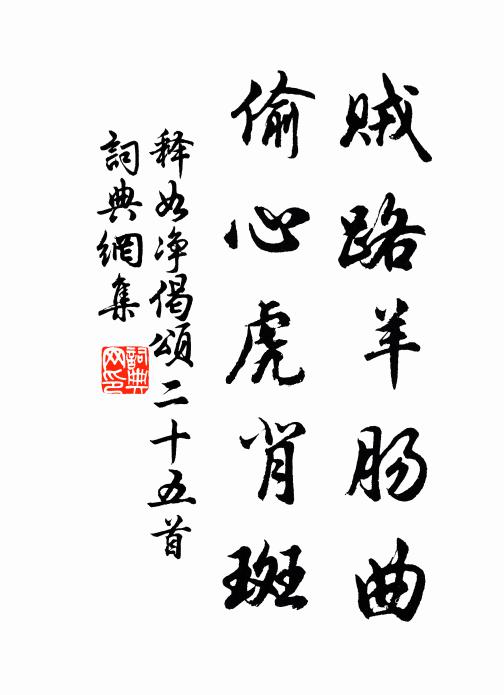 贼路羊肠曲
偷心虎背斑
释如净偈颂二十五首
詞典網集
詞典
网印